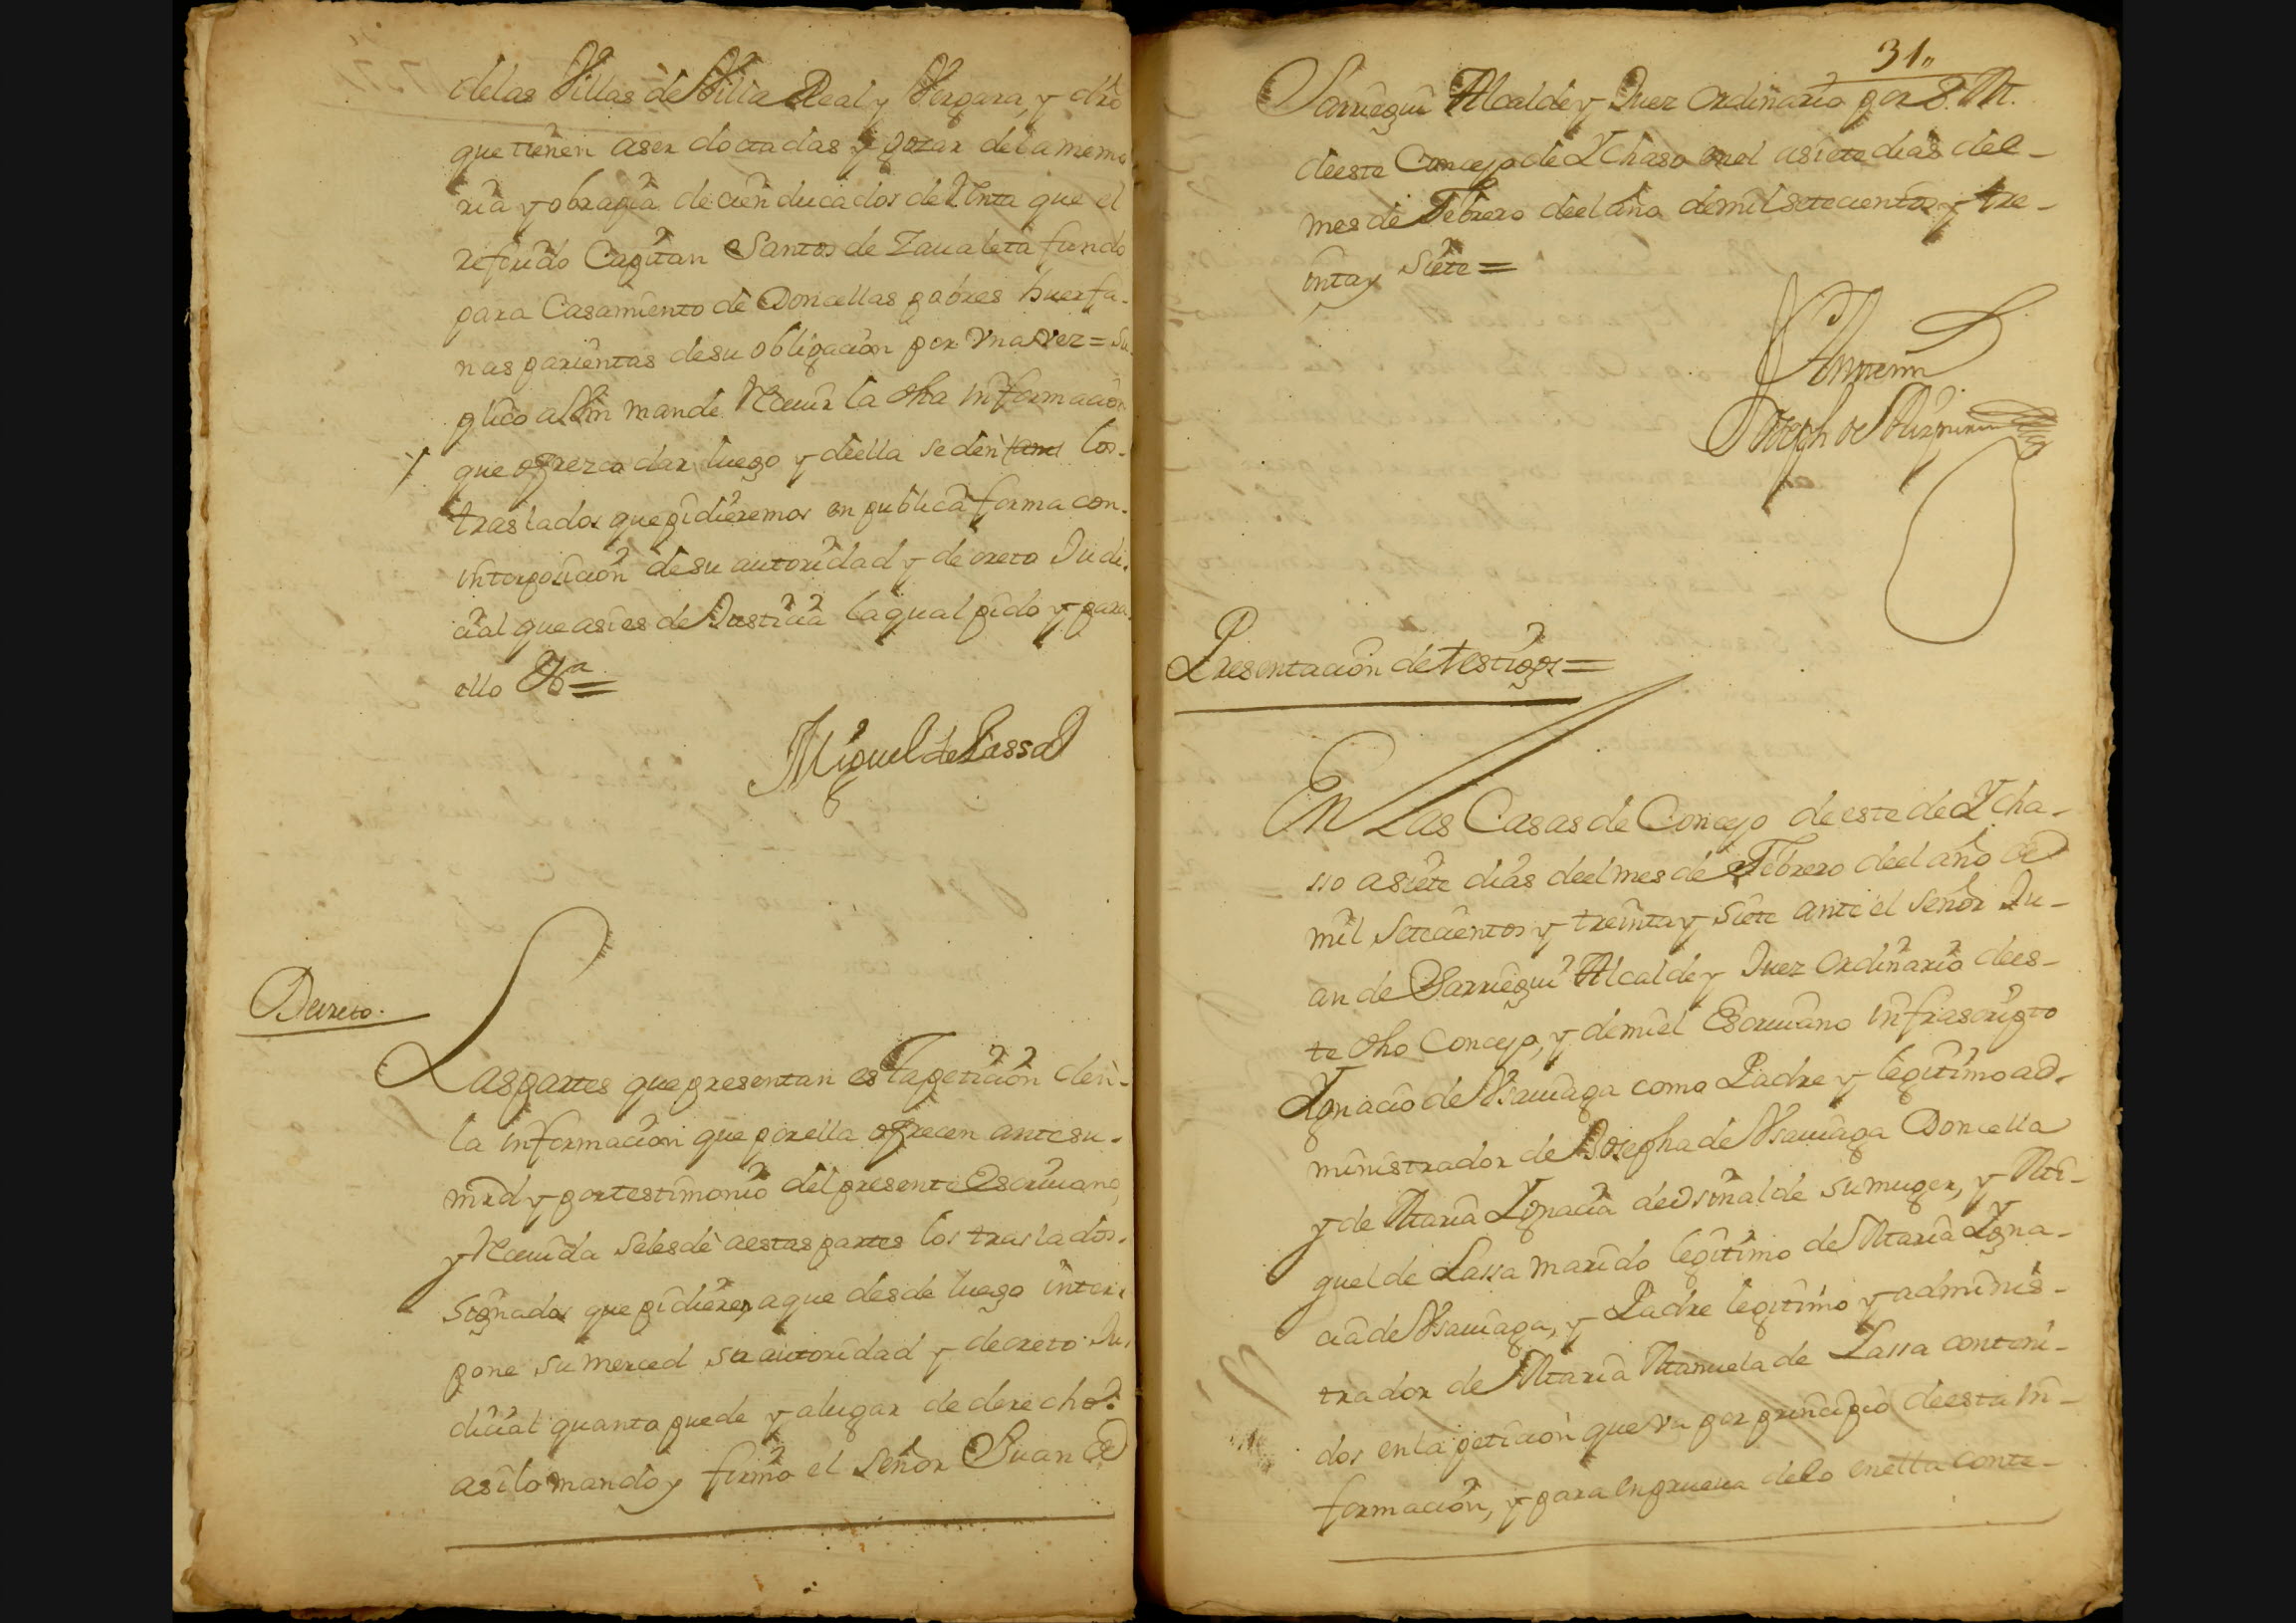 delas Villas de Villa Real y Vergara, y dro
que tienen aser doctadas y gozar dela memo
ria y obrapia de cien ducados de Renta que el
referido Capitan Santos de Zaualeta fundo
para Casamiento de Doncellas pobres huerfa-
nas parientas desu obligacion por Vna vez = Su-
plico a Vm mande Reciuir la dha informacion
que ofrezco dar luego y della seden los-
traslados que pidieremos en publica forma con-
interposicion desu autoridad y decreto Judi-
cial que asi es de Justicia la qual pido y para
ello &a =
Miguel de Lassa
Decreto.
Las partes que presentan esta peticion den-
la informacion que por ella ofrecen ante su-
mrd y por testimonio del presente Escriuano,
y Reciuida selesdè aestas partes los traslados-
signados que pidieren, aque desde luego inter-
pone su merced su autoridad y decreto Ju-
dicial quanto puede y alugar de derecho.
asi lo mando y firmo el Señor Juan de
31,,
Sarriegui Alcalde y Juez Ordinario por S. M.
deeste Concejo de Ychaso en el asiete dias del-
mes de Febrero deel año demil setecientos y tre-
inta y siete =
Ante mi
Joseph de
Presentacion de testigos =
En Las Casas de Concejo deeste de Ycha-
sso asiete dias deel mes de Febrero deel año de
mil setecientos y treinta y siete ante el señor Ju-
an de Sarriegui Alcalde y Juez Ordinario dees-
te dho Concejo, y demi el Escriuano infrascripto
Ygnacio de Vsauiaga como Padre y legitimo ad-
ministrador de Josepha de Vsauiaga Doncella
y de Maria Ygnacia de Osinalde su muger, y Mi-
guel de Lassa marido legitimo de Maria Ygna-
cia de Vsauiaga, y Padre legitimo y adminis-
trador de Maria Manuela de Lassa conteni-
dos en la peticion que va por principio deesta in-
formacion, y para en prueua delo en ella conte-